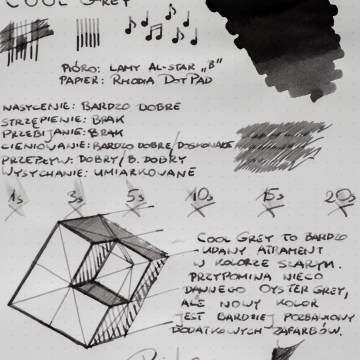 COOL GREY
PIÓRO: LAMY AL-STAR „B"
PAPIER: RHODIA DOTPAD
NASYCENIE: BARDZO DOBRE
STRZĘPIENIE: BRAK
PRZEBIJANIE: BRAK
CIENIOWANIE: BARDZO DOBRE/DOSKONAŁE
PRZEPŁYW: DOBRY/B. DOBRY
WYSYCHANIE: UMIARKOWANE
1s 3s 5s 10s 15s 20s
COOL GREY TO BARDZO
UDANY ATRAMENT
W KOLORZE SZARYM.
PRZYPOMINA NIECO
DAWNEGO OYSTER GREY,
ALE NOWY KOLOR
JEST BARDZIEJ POZBAWIONY
DODATKOWYCH ZAFARBÓW.